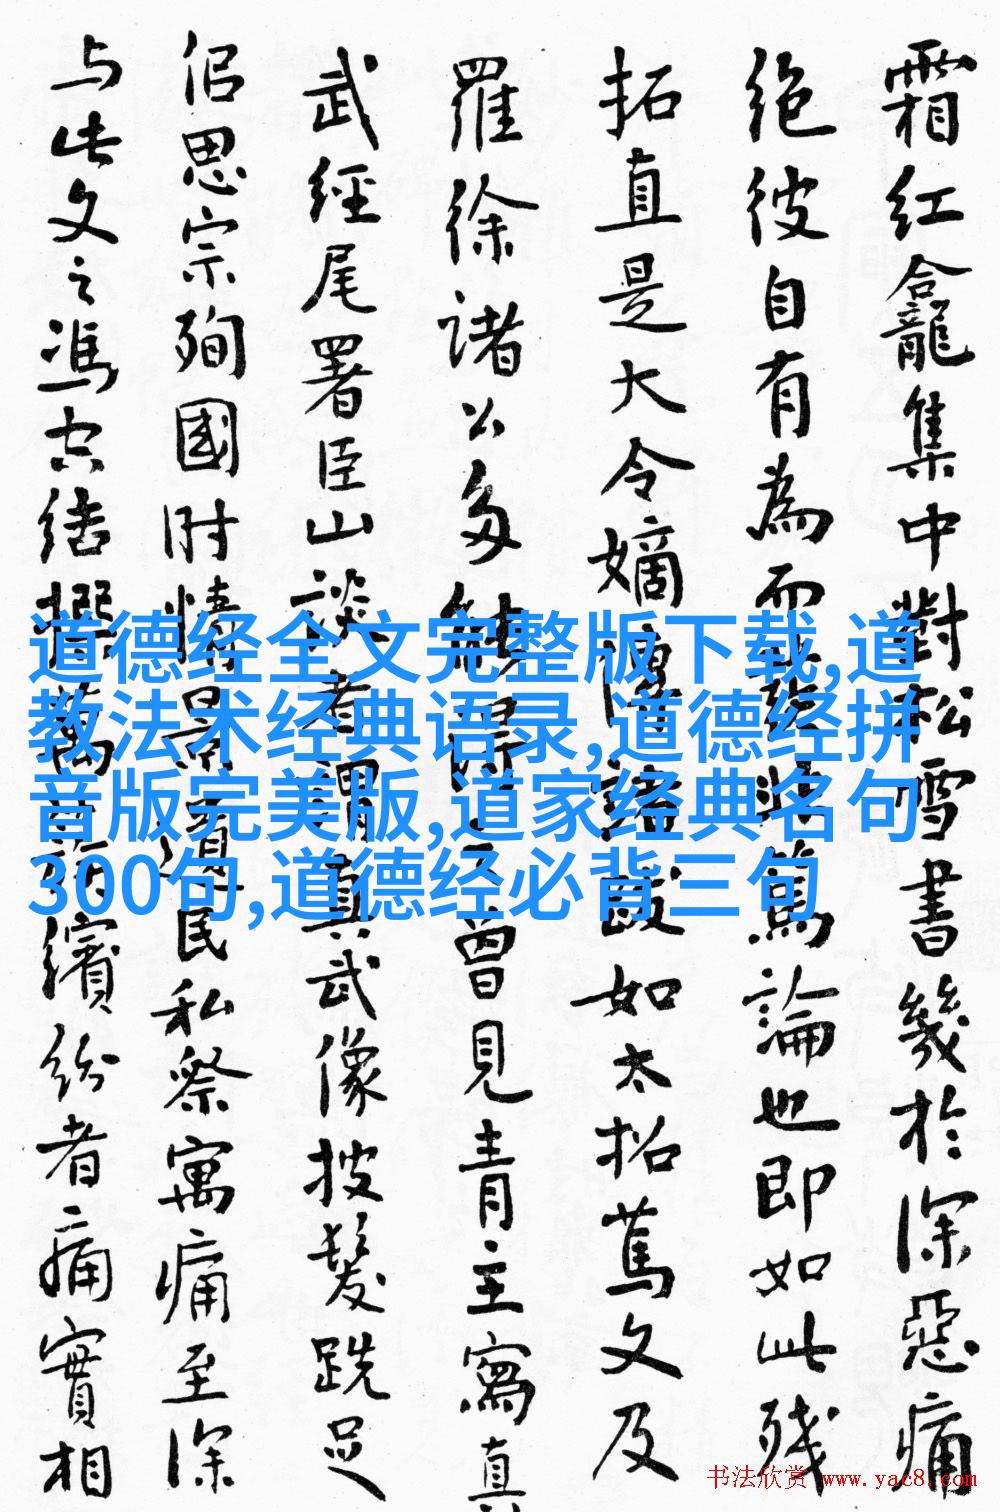 霜紅龕集中對松雪書幾於深惡痛
绝彼自有為而篤論也即如此残
拓直是大令嫡如太拓篤文及
羅徐諸公多能曾見青主寫真
武經尾署臣山談者謂真武像披髮跣足
侣思宗殉國时情景遺民私察寓痛至深
与此文之馮空结撰萬繽纷者痛實相
道德经全文完整版下载,道
教法术经典语录,道德经拼
音版完美版,道家经典名句
300句,道德经必背三句
书法欣赏 www.yac8.com